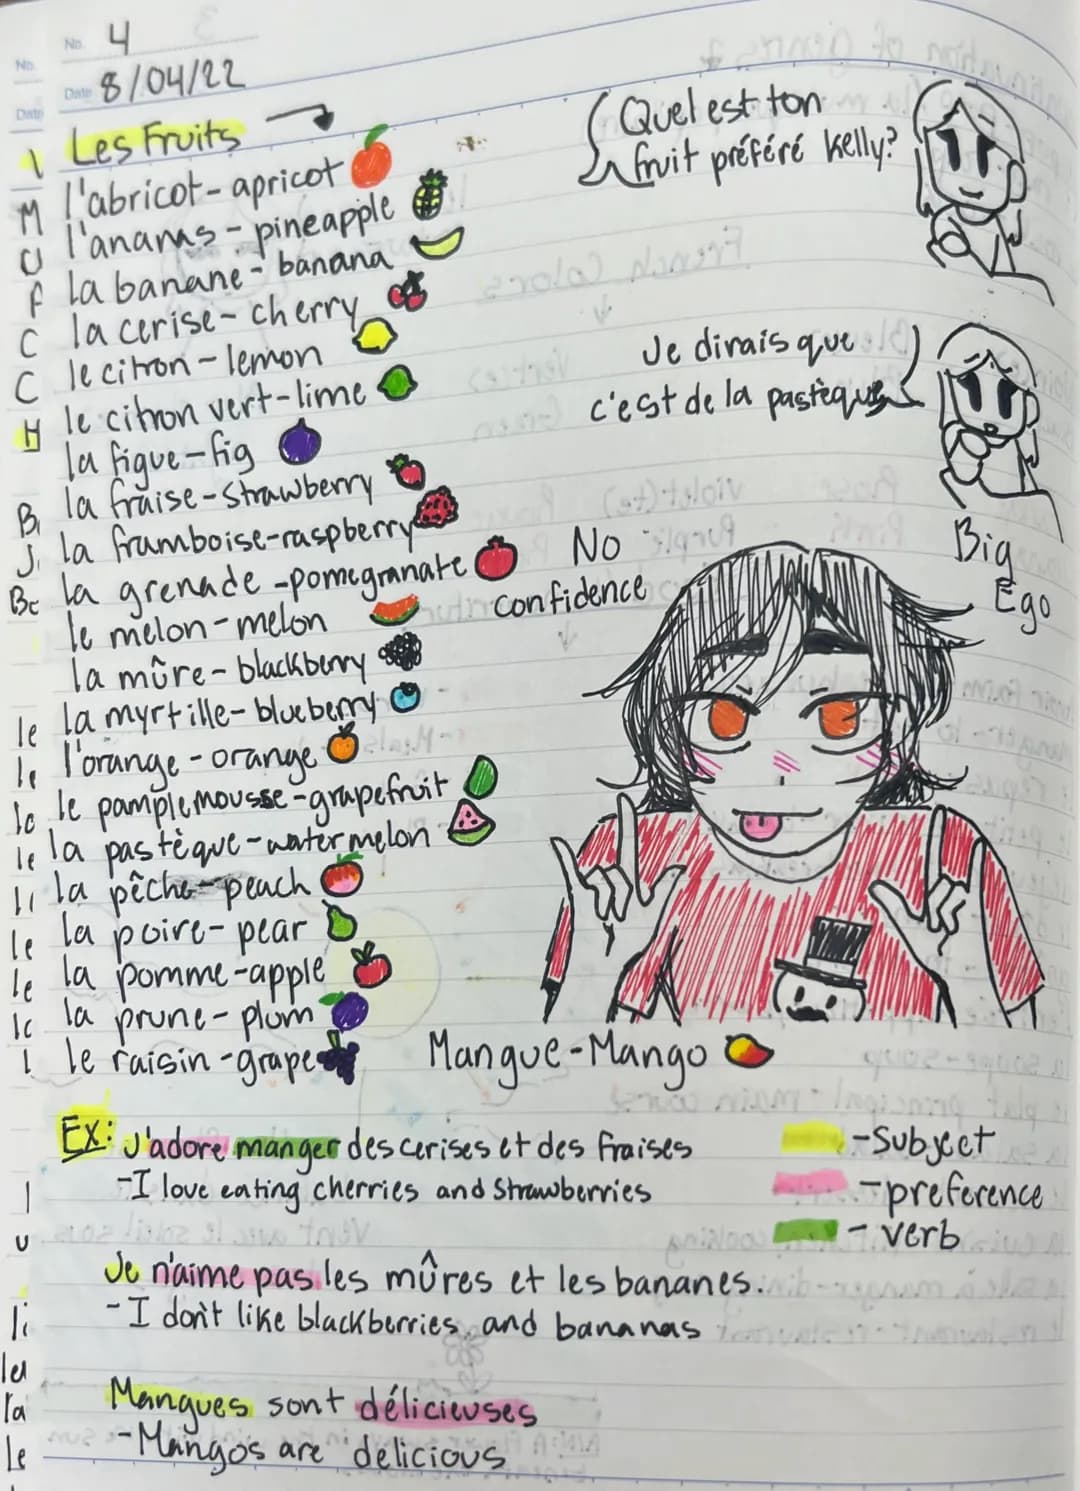 No. 4
Date 8/04/22
Les Fruits
l'abricot - apricot
l'ananas - pineapple
la banane - banana
la cerise - cherry
le citron - lemon
le citron vert - lime
la figue - fig
la fraise - strawberry
la framboise - raspberry
la grenade - pomegranate
le melon - melon
la mûre - blackberry
la myrtille - blueberry
l'orange - orange
le pamplemousse - grapefruit
la pastèque - watermelon
la pêche - peach
la poire - pear
la pomme - apple
la prune - plum
le raisin - grape
Quel est ton
fruit préféré Kelly?
Je dirais que
c'est de la pastèque
No
confidence
Big
Ego
Mangue - Mango
Ex: J'adore manger des cerises et des fraises
- I love eating cherries and strawberries
Je n'aime pas les mûres et les bananes.
- I don't like blackberries and bananas
Mangues sont délicieuses
- Mangos are delicious
- Subject
- preference
- verb